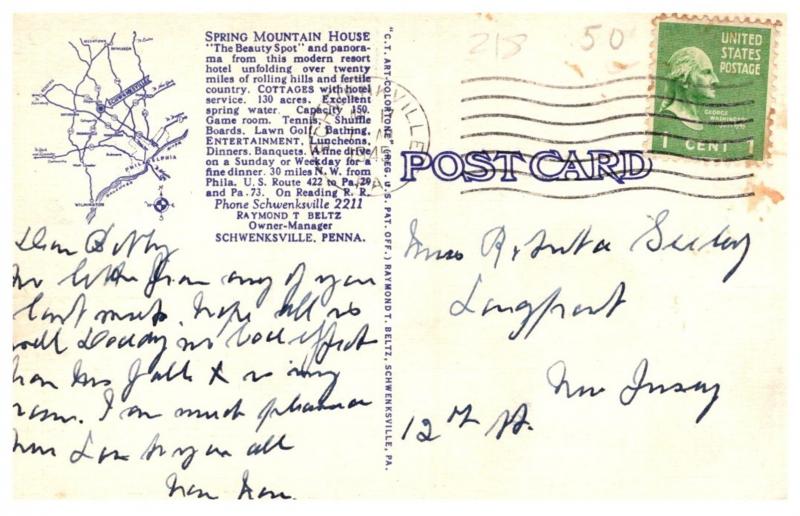 SPRING MOUNTAIN HOUSE
"The Beauty Spot" and panora-
ma from this modern resort
hotel unfolding over twenty
miles of rolling hills and fertile
country. COTTAGES with hotel
service. 130 acres. Excellent
spring water. Capacity 150.
Game room. Tennis, Shuffle
Boards, Lawn Golf, Bathing,
ENTERTAINMENT, Luncheons,
Dinners, Banquets. A fine drive
on a Sunday or Weekday for a
fine dinner. 30 miles N. W. from
Phila. U. S. Route 422 to Pa. 29
and Pa. 73. On Reading R. R.
Phone Schwenksville 2211
RAYMOND T BELTZ
Owner-Manager
SCHWENKSVILLE, PENNA.
SCHWENKSVILLE
PHILADELPHIA
WILMINGTON
Dear
no letter from any of you
last mute. hope all is
well Daddy no bad effect
from his fall & is
room. I am much
love to you all
"C. T. ART-COLORTONE" (REG. U. S. PAT. OFF.) RAYMOND T. BELTZ, SCHWENKSVILLE, PA.
218 50
UNITED
STATES
POSTAGE
GEORGE
WASHINGTON
1 CENT 1
PA
POST CARD
Miss Seeley
Longport
New Jersey
12th St.